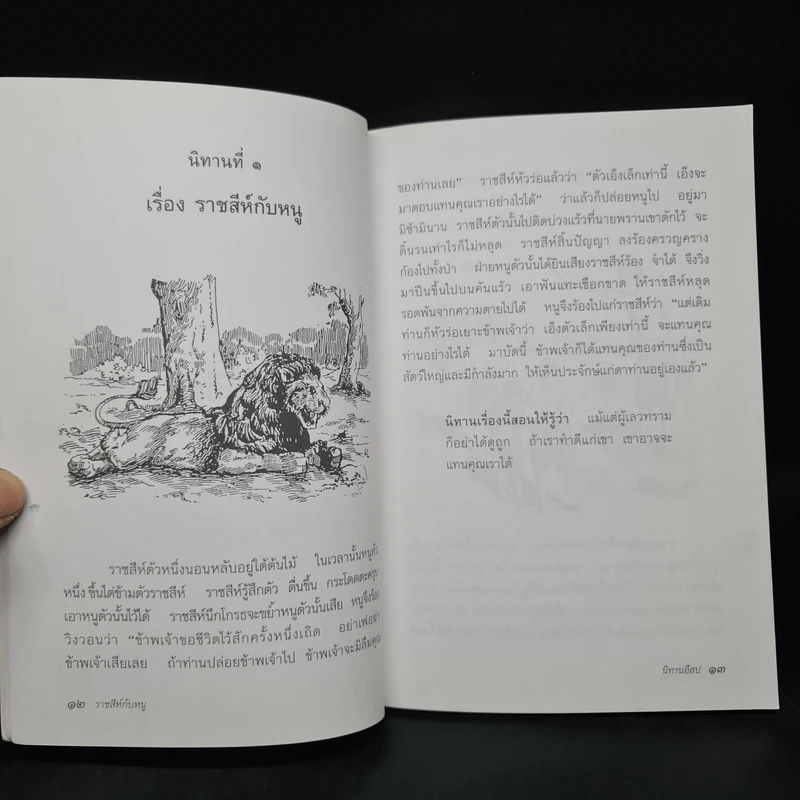 นิทานที่ ๑
เรื่อง ราชสีห์กับหนู
ราชสีห์ตัวหนึ่งนอนหลับอยู่ใต้ต้นไม้ ในเวลานั้นหนูตัว
หนึ่งขึ้นไต่ข้ามตัวราชสีห์ ราชสีห์รู้สึกตัว ตื่นขึ้น กระโดดตะครุบ
เอาหนูตัวนั้นไว้ได้ ราชสีห์นึกโกรธจะขย้ำหนูตัวนั้นเสีย หนูจึงร้อง
วิงวอนว่า “ข้าพเจ้าขอชีวิตไว้สักครั้งหนึ่งเถิด อย่าเพ่อฆ่า
ข้าพเจ้าเสียเลย ถ้าท่านปล่อยข้าพเจ้าไป ข้าพเจ้าจะมิลืมคุณ
๑๒ ราชสีห์กับหนู
ของท่านเลย” ราชสีห์หัวร่อแล้วว่า “ตัวเอ็งเล็กเท่านี้ เอ็งจะ
มาตอบแทนคุณเราอย่างไรได้” ว่าแล้วก็ปล่อยหนูไป อยู่มา
มิช้ามินาน ราชสีห์ตัวนั้นไปติดบ่วงแร้วที่นายพรานเขาดักไว้ จะ
ดิ้นรนเท่าไรก็ไม่หลุด ราชสีห์สิ้นปัญญา ลงร้องครวญคราง
ก้องไปทั้งป่า ฝ่ายหนูตัวนั้นได้ยินเสียงราชสีห์ร้อง จำได้ จึงวิ่ง
มาปีนขึ้นไปบนคันแร้ว เอาฟันแทะเชือกขาด ให้ราชสีห์หลุด
รอดพ้นจากความตายไปได้ หนูจึงร้องไปแก่ราชสีห์ว่า “แต่เดิม
ท่านก็หัวร่อเยาะข้าพเจ้าว่า เอ็งตัวเล็กเพียงเท่านี้ จะแทนคุณ
ท่านอย่างไรได้ มาบัดนี้ ข้าพเจ้าก็ได้แทนคุณของท่านซึ่งเป็น
สัตว์ใหญ่และมีกำลังมาก ให้เห็นประจักษ์แก่ตาท่านอยู่เองแล้ว”
นิทานเรื่องนี้สอนให้รู้ว่า แม้แต่ผู้เลวทราม
ก็อย่าได้ดูถูก ถ้าเราทำดีแก่เขา เขาอาจจะ
แทนคุณเราได้
นิทานอีสป ๑๓